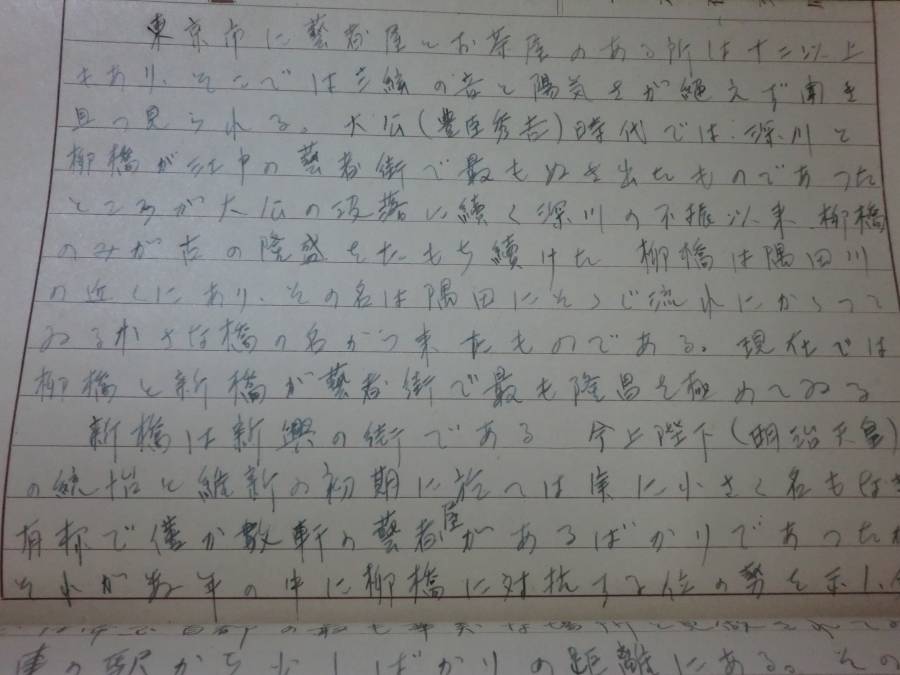 東京市に藝者屋とお茶屋のある所は十二以上
もあり、そこでは三絃の音と陽気さが絶えず聞き
且つ見られる。大公(豊臣秀吉)時代では深川と
柳橋が江戸の藝者街で最もぬき出たものであった
ところが大公の没落に続く深川の不振以来、柳橋
のみが古の隆盛をたもち続けた 柳橋は隅田川
の近くにあり、その名は隅田にそゝで流れにかゝって
ゐる小さな橋の名がつ来たものである。現在では
柳橋と新橋が藝者街で最も隆昌を極めてゐる
新橋は新興の街である 今上陛下(明治天皇)
の統治と維新の初期に於ては実に小さく名もなき
有様で僅か数軒の藝者屋があるばかりであったが
それが数年の中に柳橋に対抗する位の勢を示し
の最も
の駅から少しばかりの距離にある。その